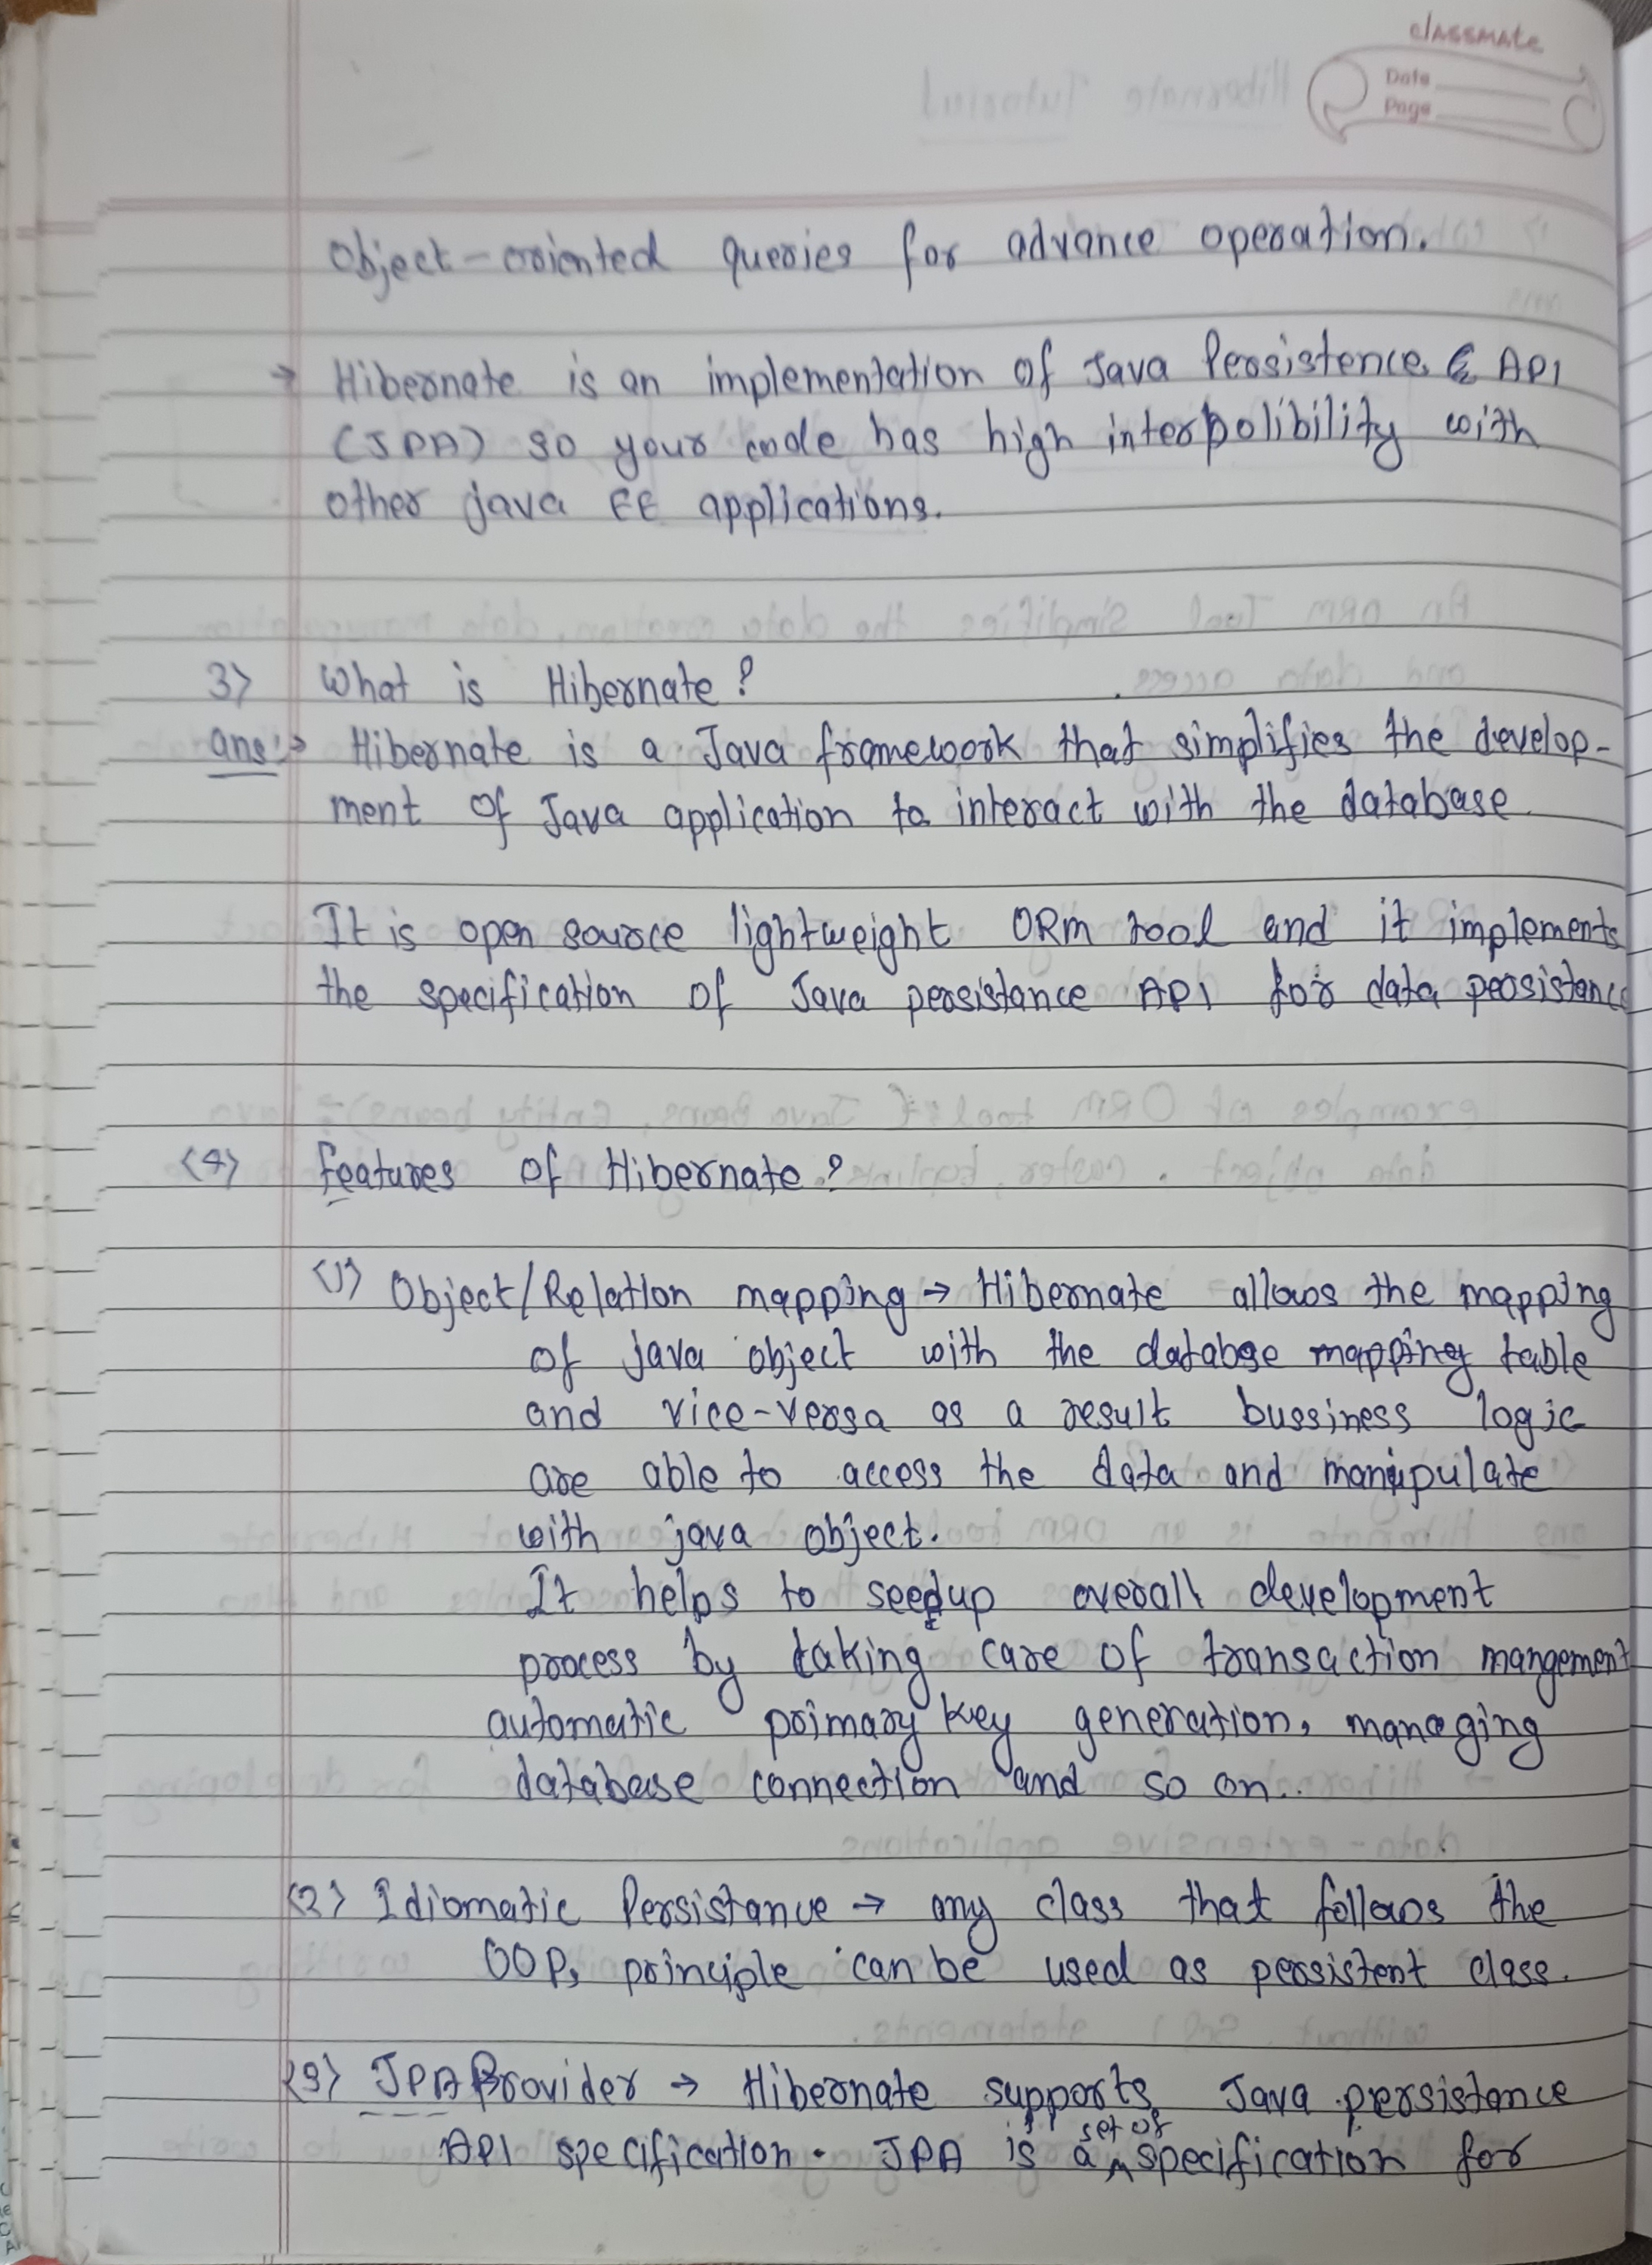 classmate
Date
Page
Object-oriented queries for advance operation.
→ Hibernate is an implementation of Java Persistence & API
(JPA) so your code has high interpolibility with
other java EE applications.
3) What is Hibernate?
ans:→ Hibernate is a Java framework that simplifies the develop-
ment of Java application to interact with the database.
It is open source lightweight ORM tool and it implements
the specification of Java persistance API for data persistance
(4) features of Hibernate?
(1) Object/Relation mapping → Hibernate allows the mapping
of java object with the database mapping table
and vice-versa as a result bussiness logic
are able to access the data and manipulate
with java object.
It helps to seedup overall development
process by taking care of transaction mangement
automatic primary key generation, managing
database connection and so on..
(2) Idiomatic Persistance → any class that follows the
OOPs principle can be used as persistent class.
(3) JPA Provider → Hibernate supports Java persistance
API specification. JPA is a set of specification for